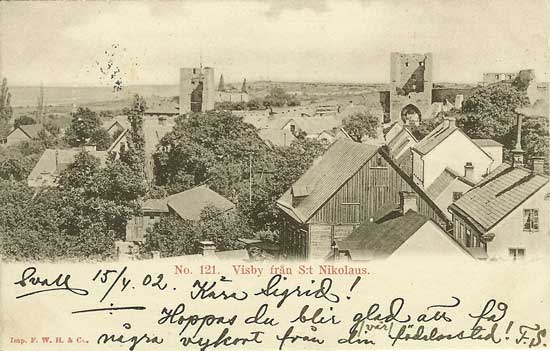 No. 121. Visby från S:t Nikolaus.
Svall 15/4 02. Kära Sigrid!
Hoppas du blir glad att få
några vykort från din (vår) födelsostad! F.S.
Imp. F. W. H. & Co.